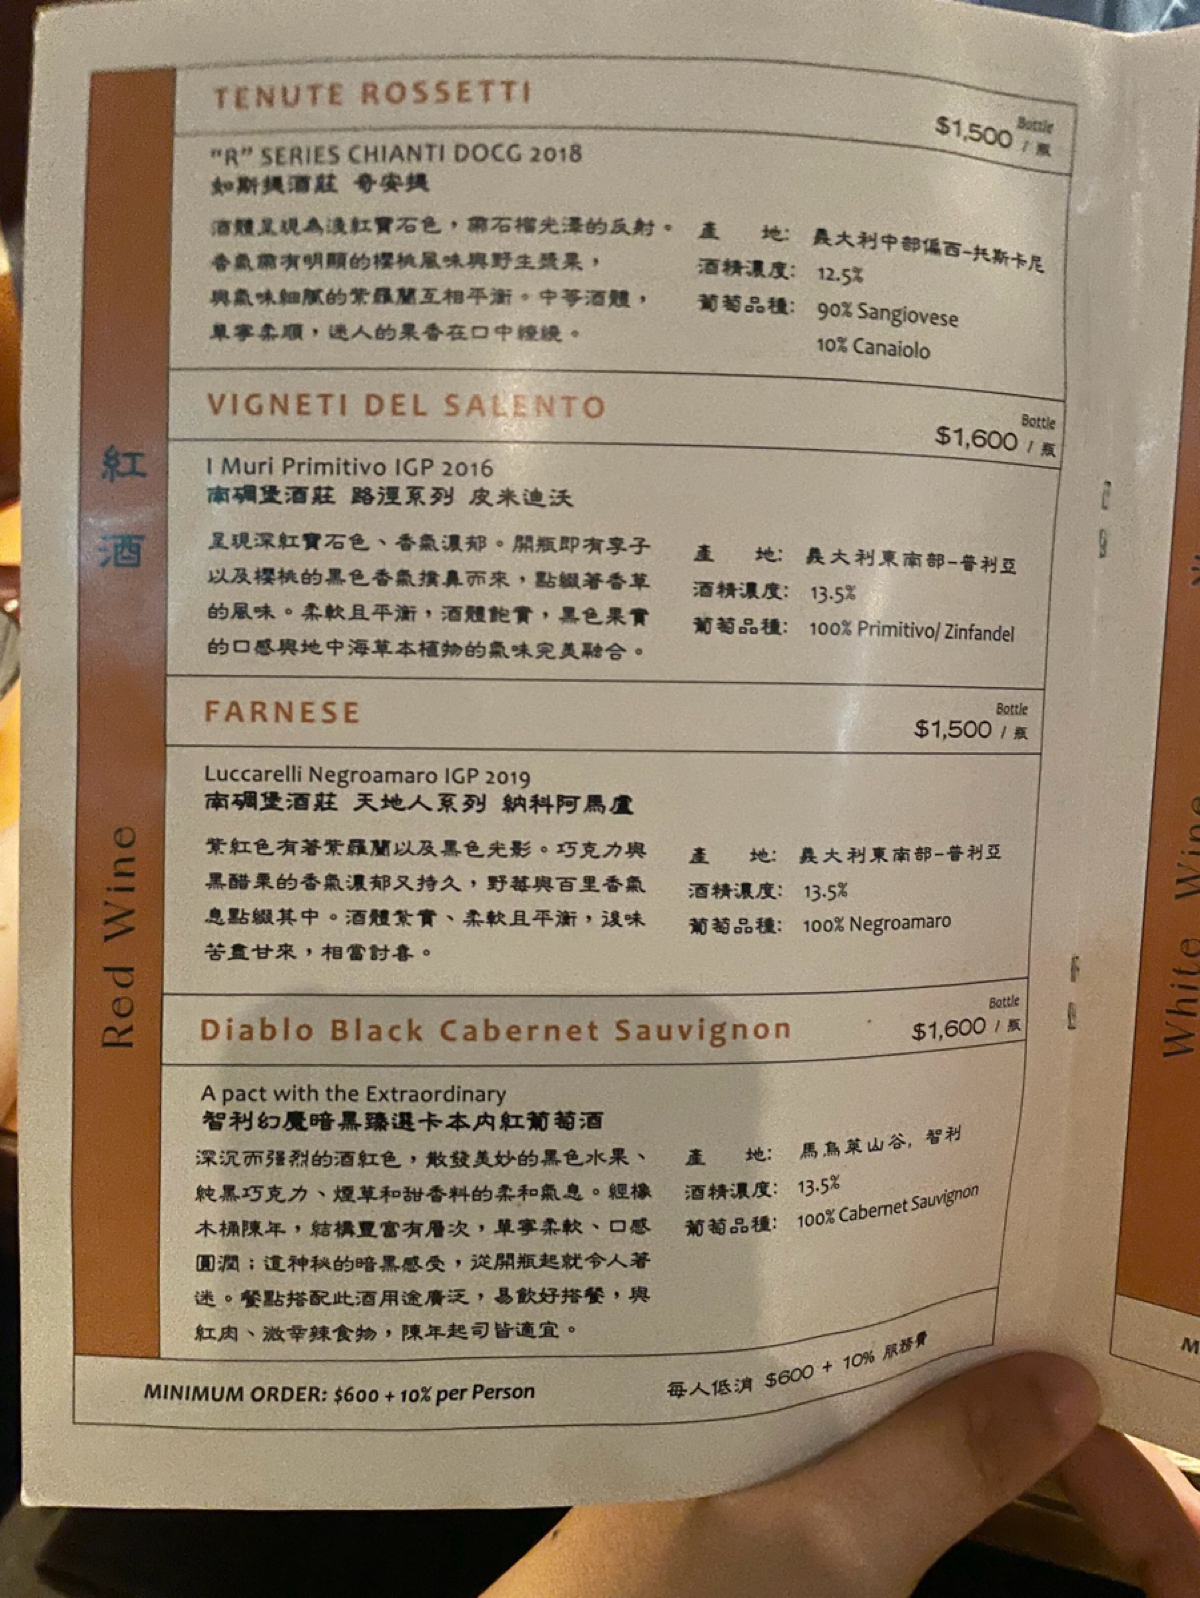 TENUTE ROSSETTI
Bottle
$1,500 / 瓶
"R" SERIES CHIANTI DOCG 2018
如斯提酒莊 奇安提
酒體呈現為淺紅寶石色，帶石榴光澤的反射。
香氣帶有明顯的櫻桃風味與野生漿果，
與氣味細膩的紫羅蘭互相平衡。中等酒體，
單寧柔順，迷人的果香在口中繚繞。
產 地: 義大利中部偏西-托斯卡尼
酒精濃度: 12.5%
葡萄品種: 90% Sangiovese
10% Canaiolo
VIGNETI DEL SALENTO
Bottle
$1,600 / 瓶
I Muri Primitivo IGP 2016
南碉堡酒莊 路徑系列 皮米迪沃
呈現深紅寶石色、香氣濃郁。開瓶即有李子
以及櫻桃的黑色香氣撲鼻而來，點綴著香草
的風味。柔軟且平衡，酒體飽實，黑色果實
的口感與地中海草本植物的氣味完美融合。
產 地: 義大利東南部-普利亞
酒精濃度: 13.5%
葡萄品種: 100% Primitivo/ Zinfandel
FARNESE
Bottle
$1,500 / 瓶
Luccarelli Negroamaro IGP 2019
南碉堡酒莊 天地人系列 納科阿馬盧
紫紅色有著紫羅蘭以及黑色光影。巧克力與
黑醋果的香氣濃郁又持久，野莓與百里香氣
息點綴其中。酒體紮實、柔軟且平衡，後味
苦盡甘來，相當討喜。
產 地: 義大利東南部-普利亞
酒精濃度: 13.5%
葡萄品種: 100% Negroamaro
Diablo Black Cabernet Sauvignon
Bottle
$1,600 / 瓶
A pact with the Extraordinary
智利幻魔暗黑臻選卡本內紅葡萄酒
深沉而强烈的酒紅色，散發美妙的黑色水果、
純黑巧克力、煙草和甜香料的柔和氣息。經橡
木桶陳年，結構豐富有層次，單寧柔軟、口感
圓潤；這神秘的暗黑感受，從開瓶起就令人著
迷。餐點搭配此酒用途廣泛，易飲好搭餐，與
紅肉、微辛辣食物，陳年起司皆適宜。
產 地: 馬烏萊山谷, 智利
酒精濃度: 13.5%
葡萄品種: 100% Cabernet Sauvignon
紅酒
Red Wine
MINIMUM ORDER: $600 + 10% per Person
每人低消 $600 + 10% 服務費
White Wine
M